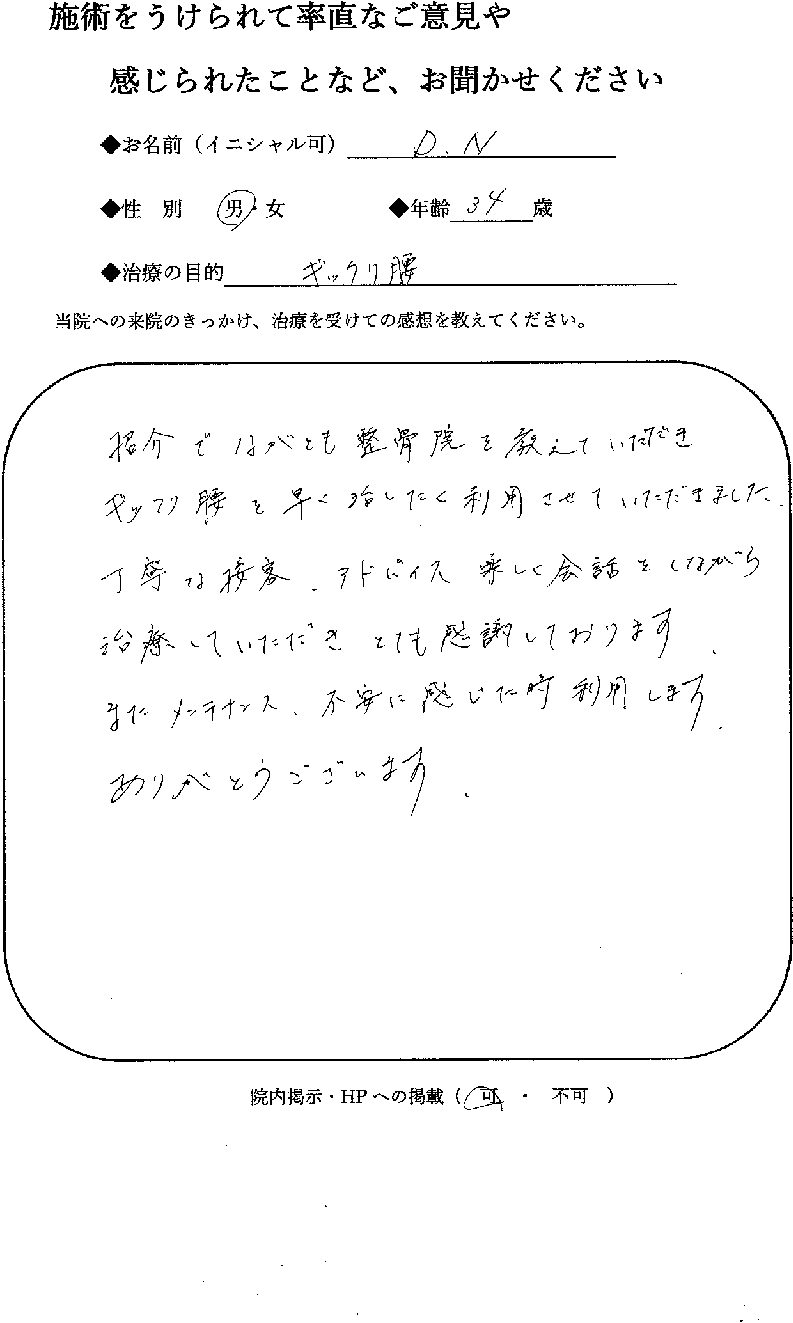 施術をうけられて率直なご意見や
感じられたことなど、お聞かせください
◆お名前（イニシャル可） D.N
◆性 別 男・女 ◆年齢 34 歳
◆治療の目的 ギックリ腰
当院への来院のきっかけ、治療を受けての感想を教えてください。
紹介で ながとも整骨院を教えていただき
ギックリ腰を早く治したく利用させていただきました。
丁寧な接客、アドバイス 楽しく会話をしながら
治療していただき とても感謝しております。
また メンテナンス、不安に感じた時利用します。
ありがとうございます。
院内掲示・HPへの掲載（ 可 ・ 不可 ）